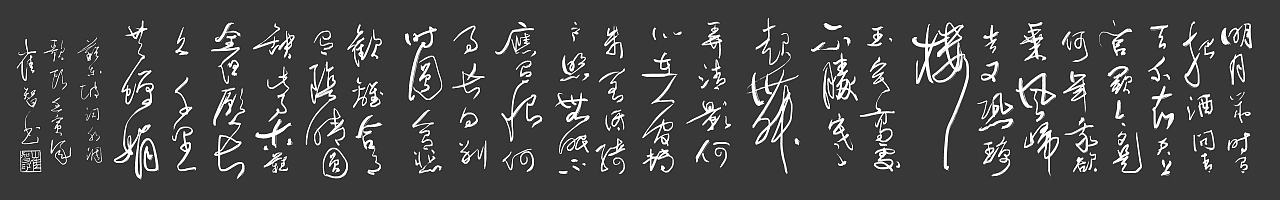 明月幾时有
把酒问青
天不知天上
宫闕今夕是
何年我欲
乘风歸
去又恐琼
樓
玉宇高處
不勝寒
起舞
弄清影何
似在人间转
朱阁低绮
户照無眠不
應有恨何
事长向别
时圆人有悲
歡離合月
有陰晴圆
缺此事古難
全但願人长
久千里
共嬋娟
蘇东坡词水调
歌头壬寅
崔智书